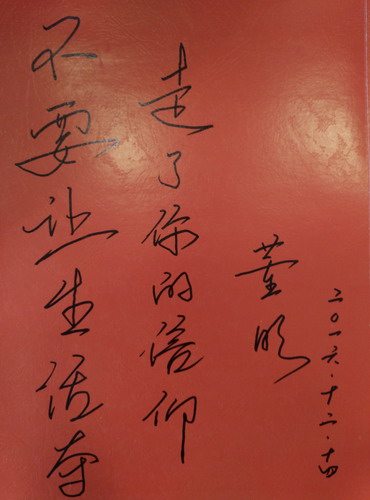 不要让生活夺
走了你的信仰
董明
二〇一六·十二·十四